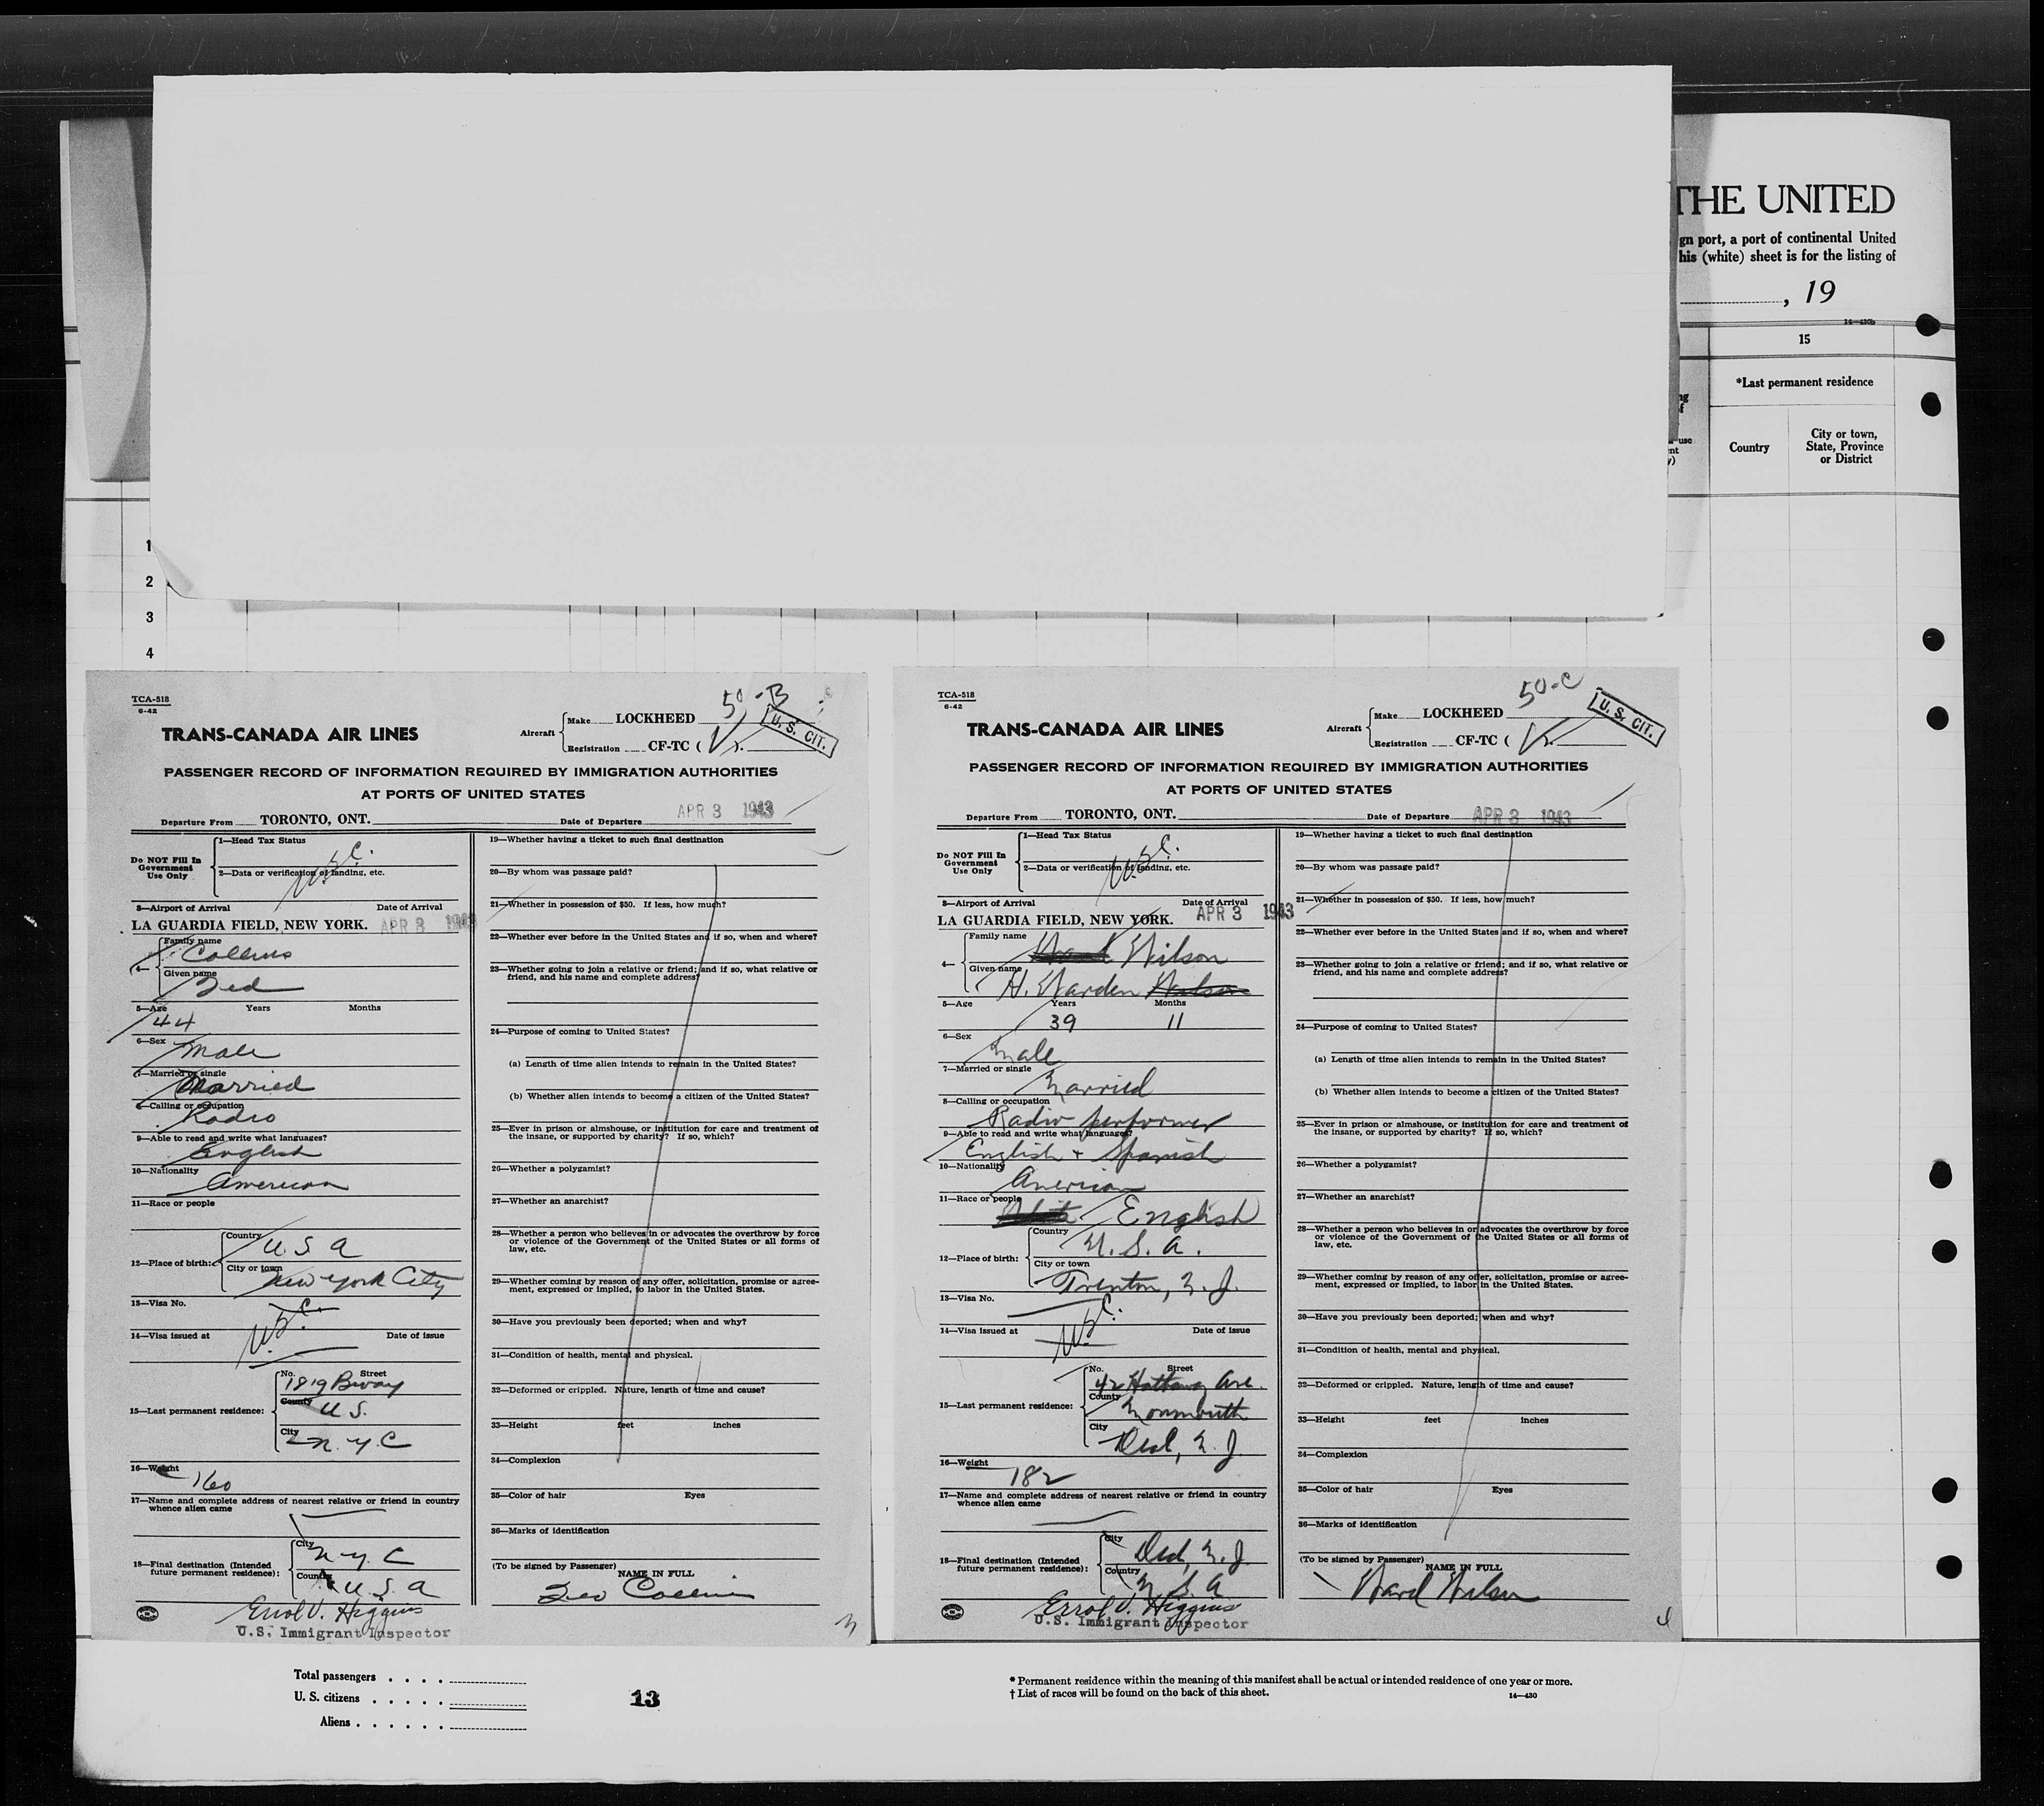 THE UNITED
gn port, a port of continental United
his (white) sheet is for the listing of
, 19
14—430b
15
*Last permanent residence
Country
City or town,
State, Province
or District
1
2
3
4
TCA-518
6-42
50-B
U. S. CIT.
TRANS-CANADA AIR LINES
Aircraft
Make LOCKHEED
Registration CF-TC (
PASSENGER RECORD OF INFORMATION REQUIRED BY IMMIGRATION AUTHORITIES
AT PORTS OF UNITED STATES
Departure From TORONTO, ONT. Date of Departure APR 3 1943
Do NOT Fill In
Government
Use Only
1—Head Tax Status
U.S.C.
2—Data or verification of landing, etc.
3—Airport of Arrival Date of Arrival
LA GUARDIA FIELD, NEW YORK. APR 3 1943
4— Family name
Collins
Given name
Ted
5—Age Years Months
44
6—Sex
Male
7—Married or single
Married
8—Calling or occupation
Radio
9—Able to read and write what languages?
English
10—Nationality
American
11—Race or people
12—Place of birth:
Country
U S A
City or town
New York City
13—Visa No.
U.S.C.
14—Visa issued at Date of issue
15—Last permanent residence:
No. Street
1819 Bway
County
U.S.
City
N.Y.C
16—Weight
160
17—Name and complete address of nearest relative or friend in country
whence alien came
18—Final destination (Intended
future permanent residence):
City
N.Y.C
Country
U.S.A
Errol V. Higgins
U.S. Immigrant Inspector
19—Whether having a ticket to such final destination
20—By whom was passage paid?
21—Whether in possession of $50. If less, how much?
22—Whether ever before in the United States and if so, when and where?
23—Whether going to join a relative or friend; and if so, what relative or
friend, and his name and complete address?
24—Purpose of coming to United States?
(a) Length of time alien intends to remain in the United States?
(b) Whether alien intends to become a citizen of the United States?
25—Ever in prison or almshouse, or institution for care and treatment of
the insane, or supported by charity? If so, which?
26—Whether a polygamist?
27—Whether an anarchist?
28—Whether a person who believes in or advocates the overthrow by force
or violence of the Government of the United States or all forms of
law, etc.
29—Whether coming by reason of any offer, solicitation, promise or agree-
ment, expressed or implied, to labor in the United States.
30—Have you previously been deported; when and why?
31—Condition of health, mental and physical.
32—Deformed or crippled. Nature, length of time and cause?
33—Height feet inches
34—Complexion
35—Color of hair Eyes
36—Marks of identification
(To be signed by Passenger)
NAME IN FULL
Ted Collins
3
TCA-518
6-42
50-C
U. S. CIT.
TRANS-CANADA AIR LINES
Aircraft
Make LOCKHEED
Registration CF-TC (
PASSENGER RECORD OF INFORMATION REQUIRED BY IMMIGRATION AUTHORITIES
AT PORTS OF UNITED STATES
Departure From TORONTO, ONT. Date of Departure APR 3 1943
Do NOT Fill In
Government
Use Only
1—Head Tax Status
U.S.C.
2—Data or verification of landing, etc.
3—Airport of Arrival Date of Arrival
LA GUARDIA FIELD, NEW YORK. APR 3 1943
4— Family name
Wilson
Given name
H. Warden Wilson
5—Age Years Months
39 11
6—Sex
Male
7—Married or single
Married
8—Calling or occupation
Radio performer
9—Able to read and write what languages?
English + Spanish
10—Nationality
American
11—Race or people
White English
12—Place of birth:
Country
U.S.A.
City or town
Trenton, N.J.
13—Visa No.
U.S.C.
14—Visa issued at Date of issue
15—Last permanent residence:
No. Street
42 Hathaway Ave.
County
Monmouth
City
Deal, N.J.
16—Weight
182
17—Name and complete address of nearest relative or friend in country
whence alien came
18—Final destination (Intended
future permanent residence):
City
Deal, N.J.
Country
U.S.A
Errol V. Higgins
U.S. Immigrant Inspector
19—Whether having a ticket to such final destination
20—By whom was passage paid?
21—Whether in possession of $50. If less, how much?
22—Whether ever before in the United States and if so, when and where?
23—Whether going to join a relative or friend; and if so, what relative or
friend, and his name and complete address?
24—Purpose of coming to United States?
(a) Length of time alien intends to remain in the United States?
(b) Whether alien intends to become a citizen of the United States?
25—Ever in prison or almshouse, or institution for care and treatment of
the insane, or supported by charity? If so, which?
26—Whether a polygamist?
27—Whether an anarchist?
28—Whether a person who believes in or advocates the overthrow by force
or violence of the Government of the United States or all forms of
law, etc.
29—Whether coming by reason of any offer, solicitation, promise or agree-
ment, expressed or implied, to labor in the United States.
30—Have you previously been deported; when and why?
31—Condition of health, mental and physical.
32—Deformed or crippled. Nature, length of time and cause?
33—Height feet inches
34—Complexion
35—Color of hair Eyes
36—Marks of identification
(To be signed by Passenger)
NAME IN FULL
Ward Wilson
4
Total passengers
U. S. citizens
Aliens
13
* Permanent residence within the meaning of this manifest shall be actual or intended residence of one year or more.
† List of races will be found on the back of this sheet.
14—430